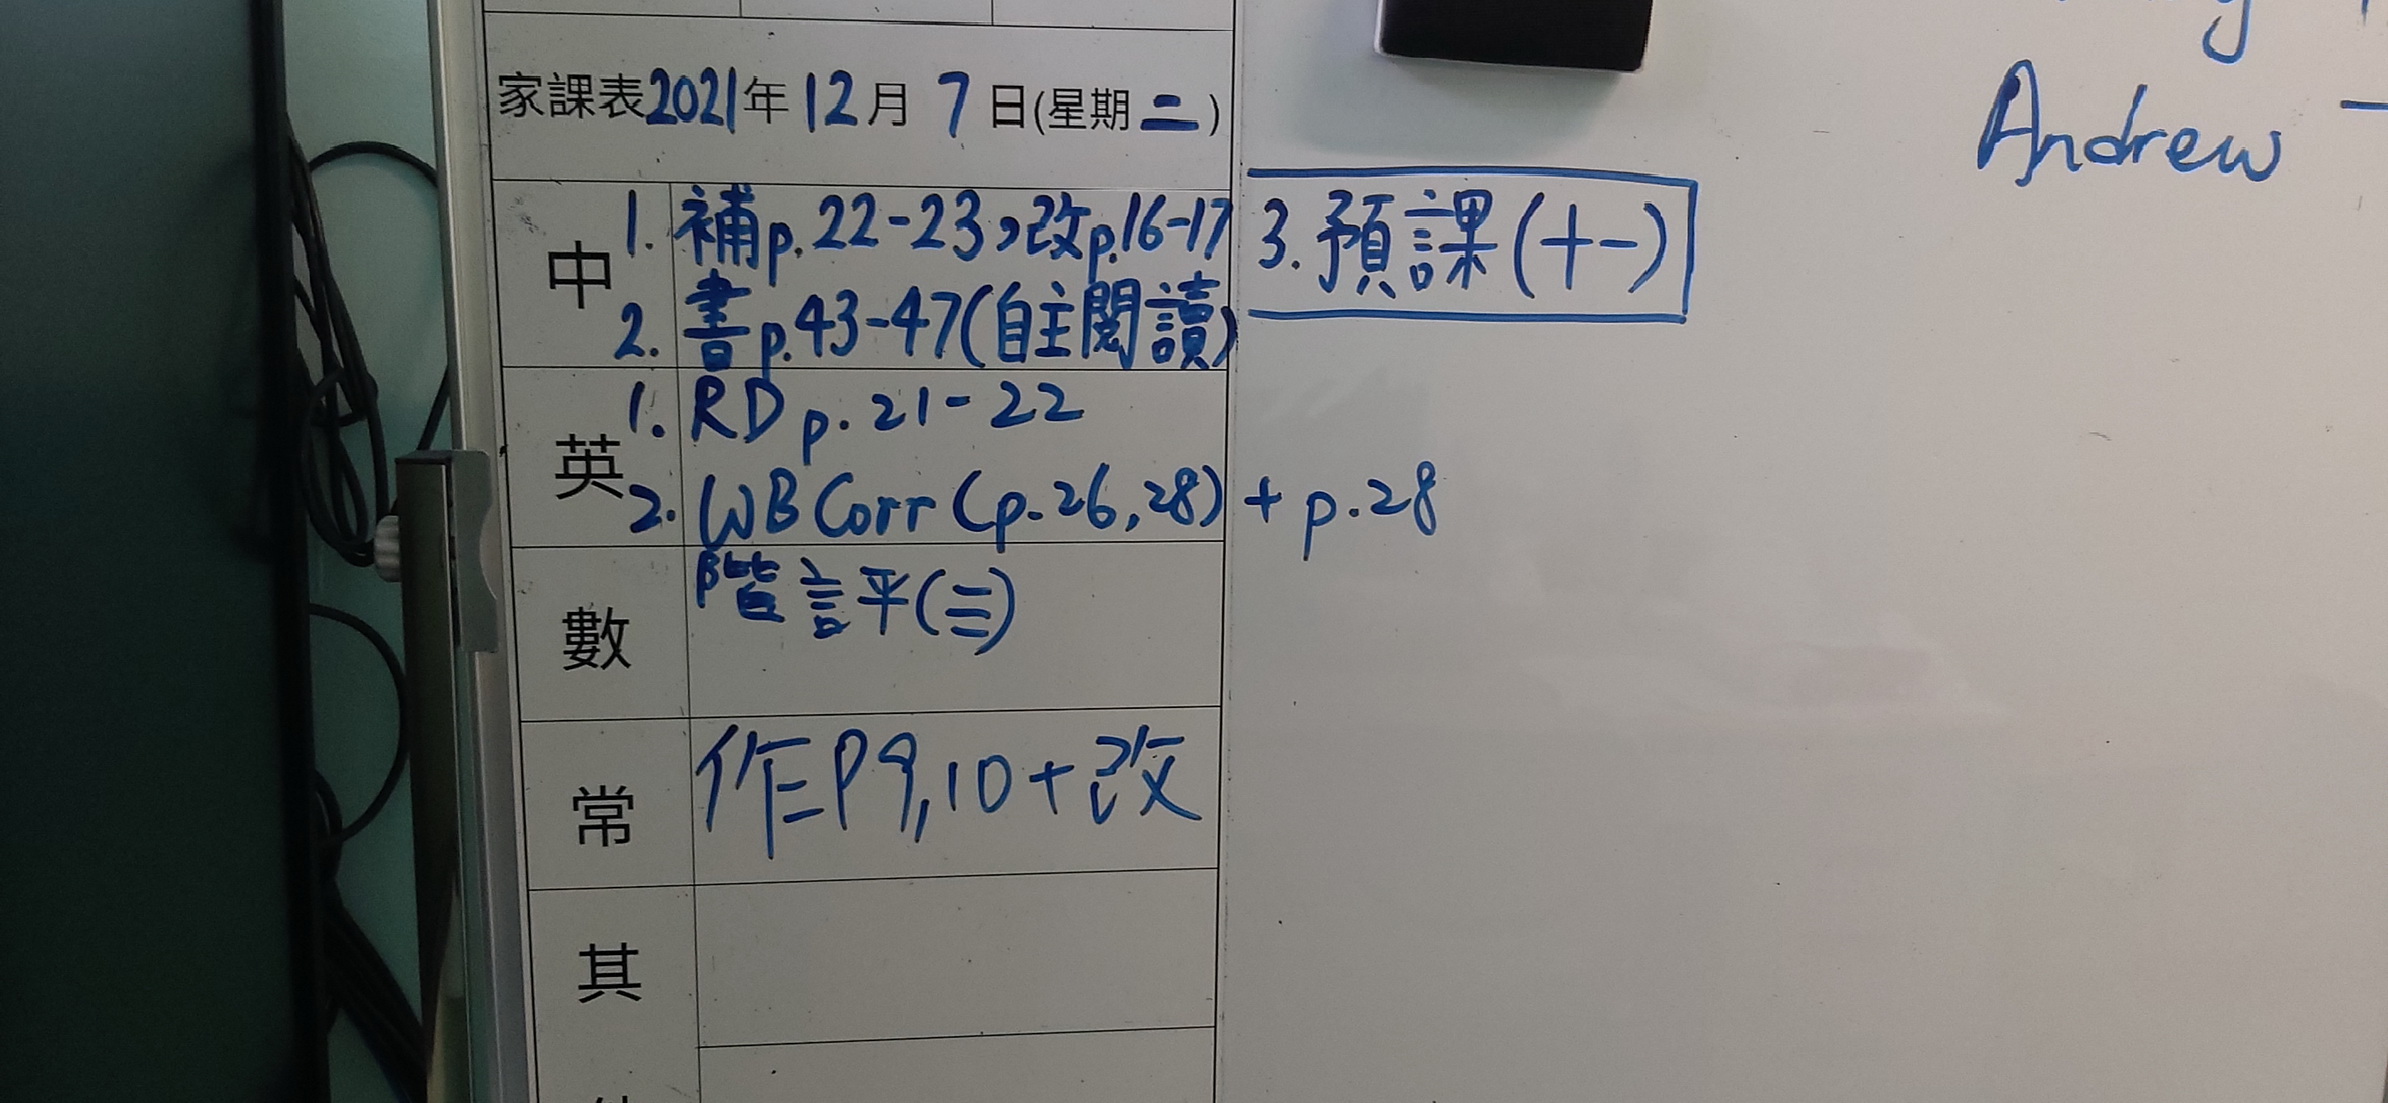 Andrew
家課表2021年12月7日(星期二)
中
1. 補p.22-23,改p.16-17
2. 書p.43-47(自主閱讀)
3. 預課(十一)
英
1. RD p.21-22
2. WB Corr (p.26,28) + p.28
數
階評(三)
常
作P9,10+改
其